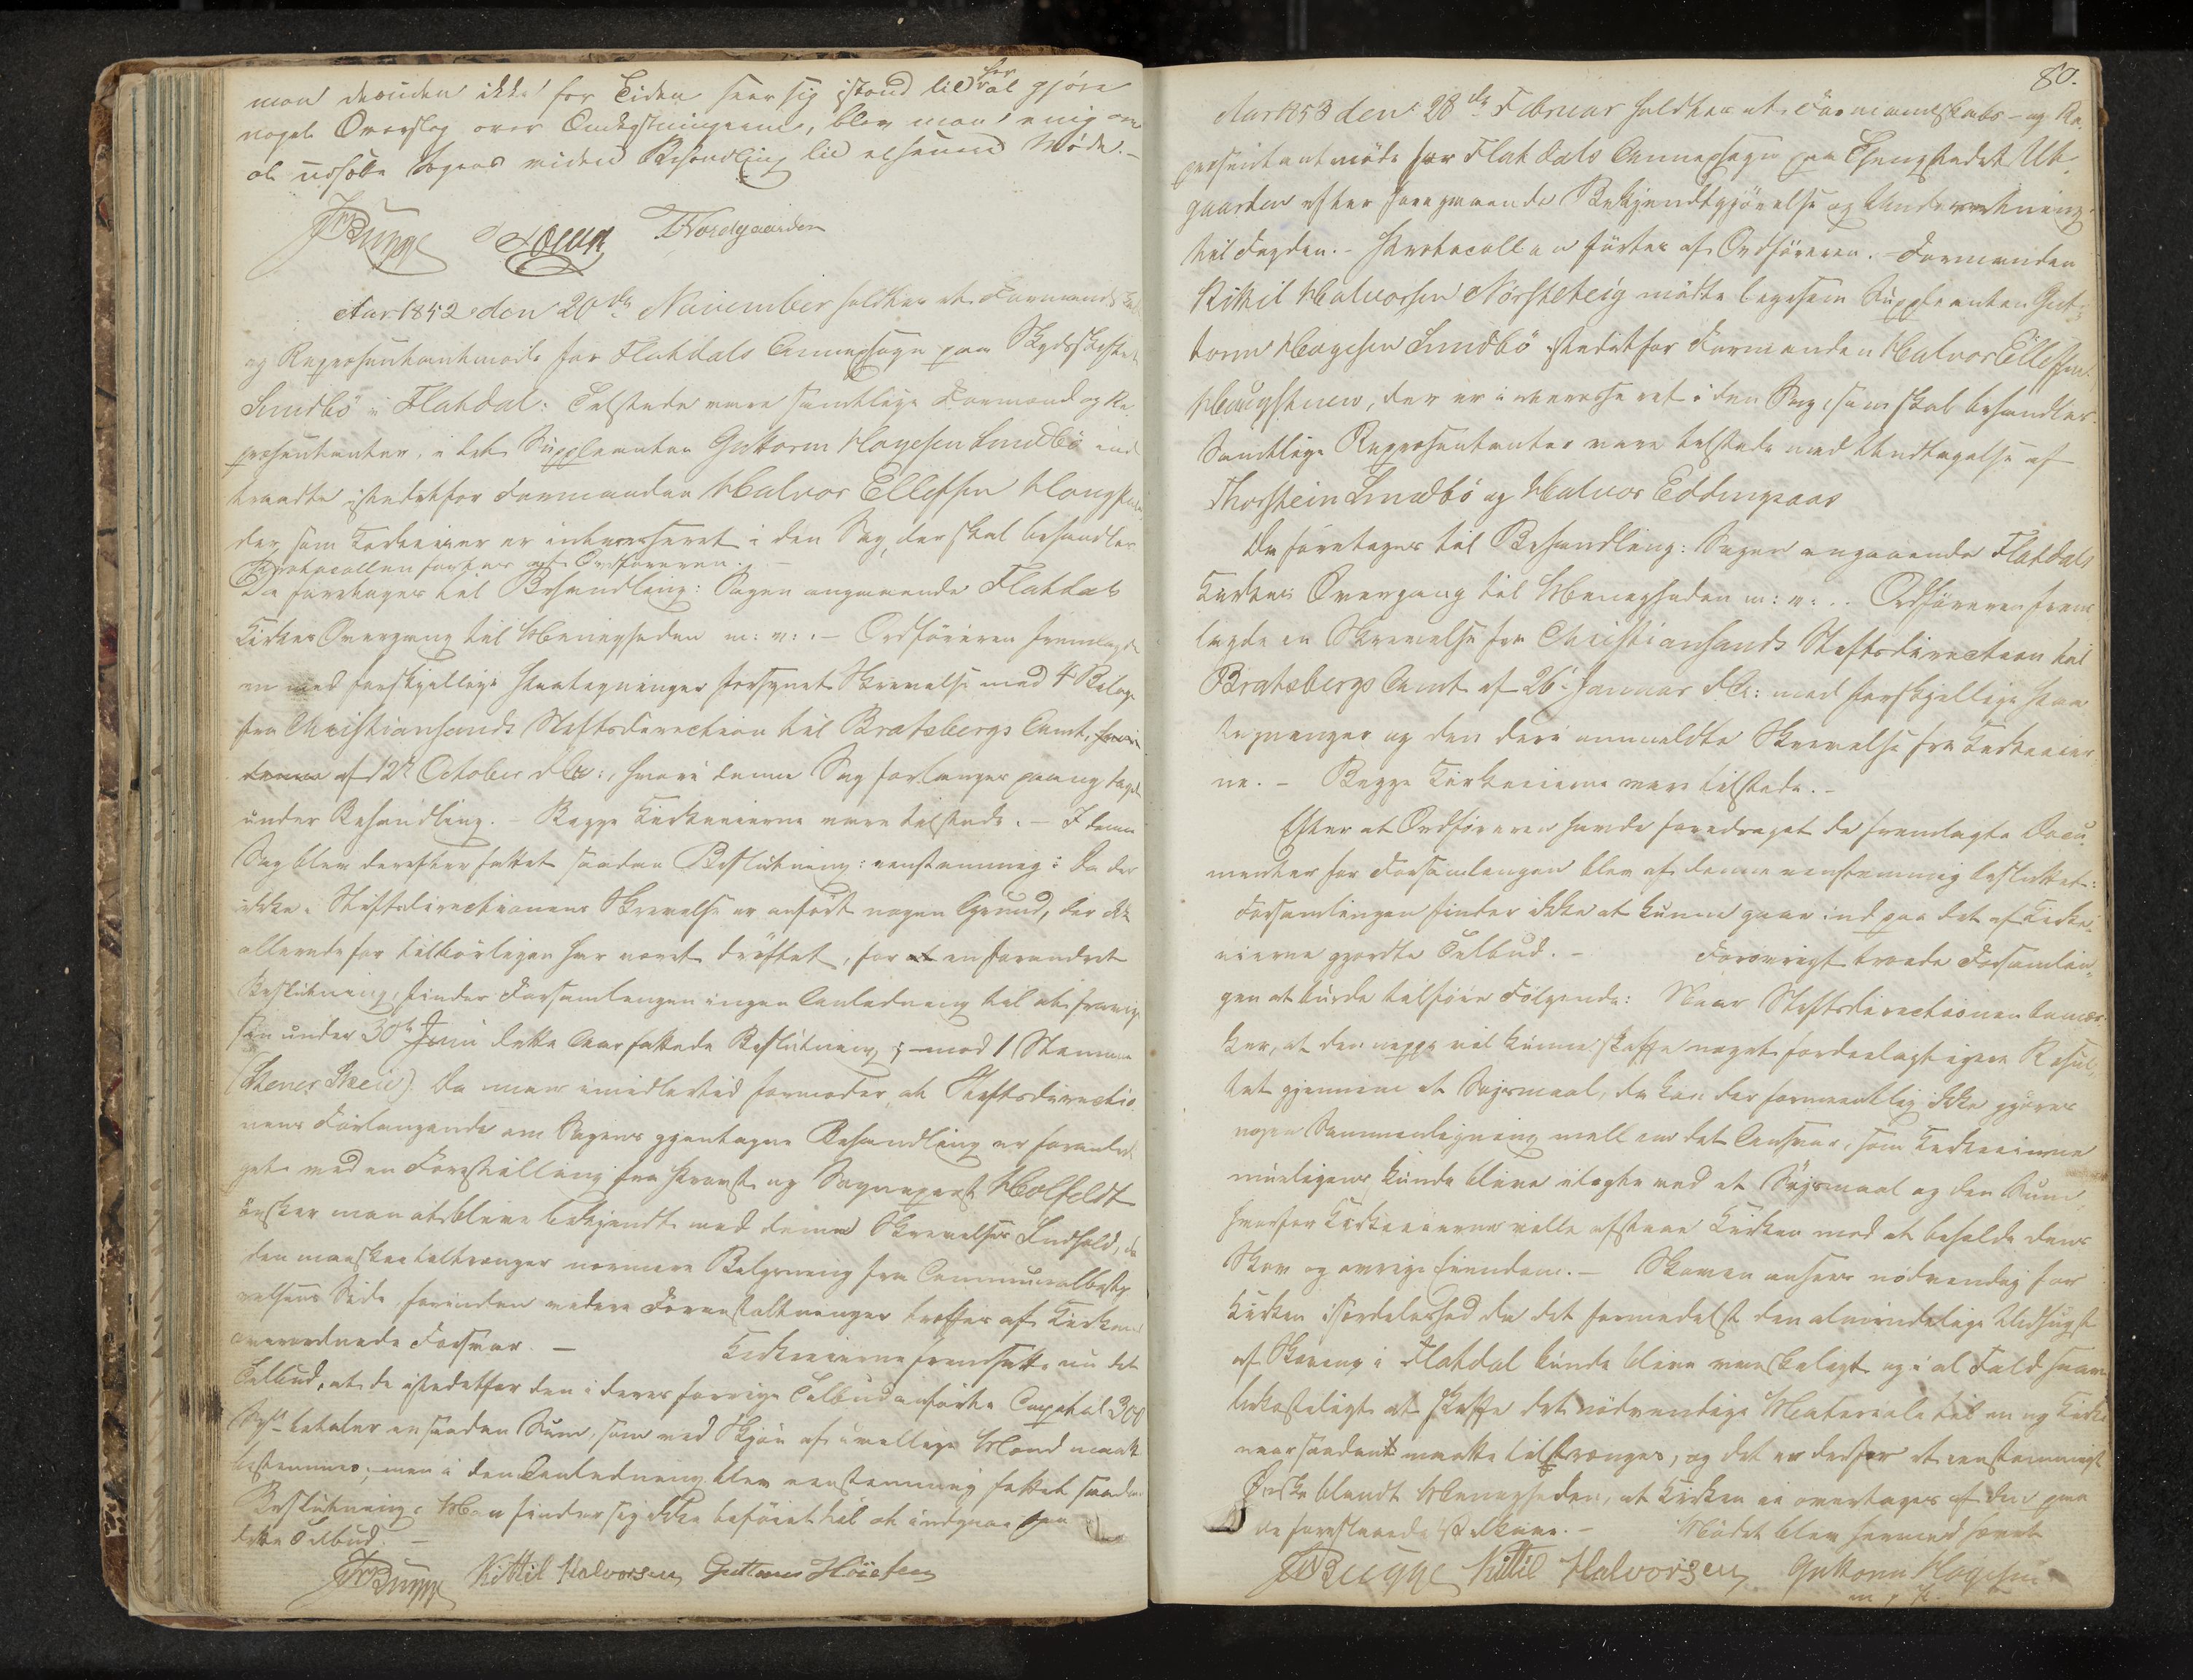 man desuden ikke for Tiden seer sig istand til her at gjöre
noget Overslag over Omkostningerne, blev man enig om
at udsætte Sagens videre Behandling til et senere Möde. –
JWBugge TNordgaarden
Aar 1852 den 20de November holdtes et Formandskabs
og Repræsentantmöde for Flatdals Annexsogn paa Skydsskiftet
Sundbö i Flatdal: Tilstede vare samtlige Formænd og Re-
præsentanter, idet Suppleanten Guttorm Hogesen Sundbö ind
traadte istedetfor Formanden Halvor Ellefsen Haugstuen
der som Kirkeeier er interesseret i den Sag, der skal behandles
Protocollen førtes af Ordføreren. –
Da foretoges til Behandling: Sagen angaaende Flatdals
Kirkes Overgang til Menigheden m: v: . – Ordföreren fremlagde
en med forskjellige Paategninger forsynet Skrivelse med 4 Bilage
fra Christiansands Stiftsdirection til Bratsbergs Amt,
af 12te October d Ar:, hvori denne Sag forlanges paany taget
under Behandling. – Begge Kirkeeierne vare tilstede. – I denne
Sag blev derefter fattet saadan Beslutning: eenstemmig: Da der
ikke i Stiftsdirectionens Skrivelse er anfört nogen Grund, der ikke
allerede för tilbörligen har været dröftet, for en forandret
Beslutning, finder Forsamlingen ingen Anledning til at fravige
sin under 30te Juni dette Aar fattede Beslutning; – mod 1 Stemme
(Stener Skeie). Da man imidlertid formoder, at Stiftsdirectio
nens Forlangende om Sagens gjentagne Behandling er foranled
get ved en Forestilling fra Provst og Sogneprest Holfeldt
önsker man at blive bekjendt med denne Skrivelses Indhold, da
den maaskee tiltrænger nærmere Belysning fra Communalbesty
relsens Side, forinden videre Foranstaltninger træffes af Kirkens
overordnede Forsvar. – Kirkeeierne fremsatte nu det
Tilbud, at de istedetfor den i deres forrige Tilbud anförte Capital 300
Spd betaler en saadan Sum, som ved Skjön af uvillige Mænd maatte
bestemmes; men i den Anledning blev eenstemmig fattet saadan
Beslutning: Man finder sig ikke beföiet til at indgaae paa
dette Tilbud. –
JWBugge Kittil Halvorsen Guttorm Höiesen
80.
Aar 1853 den 28de Februar holdtes et Formandskabs- og Re-
præsentantmöde for Flatdals Annexsogn paa Thingstedet Ut-
gaarden efter foregaaende Bekjendtgjörelse og Underretning
til Fogden. – Protocollen förtes af Ordföreren. – Formanden
Kittil Halvorsen Nörsteteig mödte ligesom Suppleanten Gut-
torm Hogesen Sundbö istedetfor Formanden Halvor Ellefsen
Haugstuen, der er interesseret i den Sag, som skal behandles.
Samtlige Repræsentanter vare tilstede med Undtagelse af
Thorstein Sundbö og Halvor Eddingsaas
Da foretoges til Behandling: Sagen angaaende Flatdals
Kirkes Overgang til Menigheden m: v: . . Ordföreren frem
lagde en Skrivelse fra Christiansands Stiftsdirection til
Bratsbergs Amt af 26 Januar d A: med forskjellige Paa
tegninger og den deri ommeldte Skrivelse fra Kirkeeier
ne. – Begge Kirkeeierne vare tilstede. –
Efter at Ordföreren havde foredraget de fremlagte Docu
menter for Forsamlingen blev af denne eenstemmig besluttet:
Forsamlingen finder ikke at kunne gaae ind paa det af Kirke-
eierne gjorde Tilbud. – Forövrigt troede Forsamlin-
gen at burde tilföie Fölgende: Naar Stiftsdirectionen bemær-
ker, at den neppe vil kunne skaffe noget fordeelagtigere Resul-
tat gjennem et Sögsmaal, da kan der formeentlig ikke gjöres
nogen Sammenligning mellem det Ansvar, som Kirkeeierne
muligens kunde blive ilagte ved et Sögsmaal og den Sum,
hvorfor Kirkeeierne ville afstaae Kirken med at beholde dens
Skov og övrige Eiendom. – Skoven ansees nödvendig for
Kirken isærdeleshed da det formedelst den almindelige Udhugst
af Skoven i Flatdal kunde blive vanskeligt og i al Fald saare
bekosteligt at skaffe det nödvendige Materiale til en ny Kirke
naar saadant maatte tiltrænges, og det er derfor et eenstemmigt
Önske blandt Menigheden, at Kirken ei overtages af den paa
de foreslaaede Vilkaar. – Mödet blev hermed hævet
JWBugge Kittil Halvorsen Guttorm Hogesen
m. p. P.